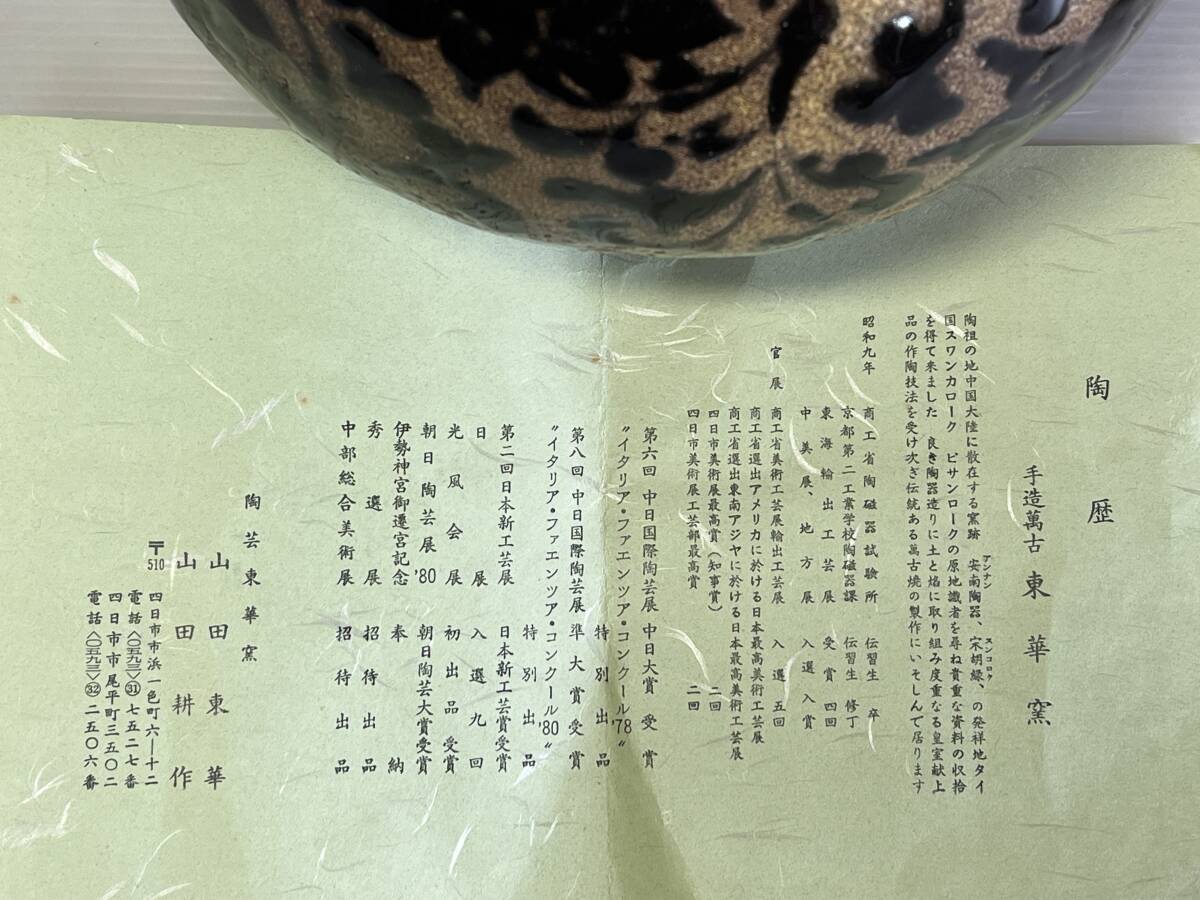 陶歴
手造萬古 東華窯
陶祖の地中国大陸に散在する窯跡 安南陶器、宋胡録、の発祥地タイ
アンナン
スンコロク
国スワンカローク ピサンロークの原地識者を尋ね貴重な資料の収拾
を得て来ました 良き陶器造りに土と焰に取り組み度重なる皇室献上
品の作陶技法を受け次ぎ伝統ある萬古焼の製作にいそしんで居ります
昭和九年 商工省陶磁器試験所 伝習生 卒
京都第二工業学校陶磁器課 伝習生 修了
東海輸出工芸展 受賞 四回
中美展、地方展 入選入賞
官展 商工省美術工芸展輸出工芸展 入選 五回
商工省選出アメリカに於ける日本最高美術工芸展
商工省選出東南アジヤに於ける日本最高美術工芸展
四日市美術展最高賞(知事賞) 二回
四日市美術展工芸部最高賞 二回
第六回 中日国際陶芸展 中日大賞 受賞
“イタリア・ファエンツア・コンクール'78” 特別出品
第八回 中日国際陶芸展 準大賞 受賞
“イタリア・ファエンツア・コンクール'80” 特別出品
第二回日本新工芸展 日本新工芸賞受賞
日展 入選九回
光風会展 初出品受賞
朝日陶芸展'80 朝日陶芸大賞受賞
伊勢神宮御遷宮記念 奉納
秀選展 招待出品
中部総合美術展 招待出品
陶芸東華窯
山田東華
山田耕作
〒510 四日市市浜一色町六―十二
電話〈〇五九三〉㉛七五二七番
四日市市尾平町三五〇二
電話〈〇五九三〉㉜二五〇六番